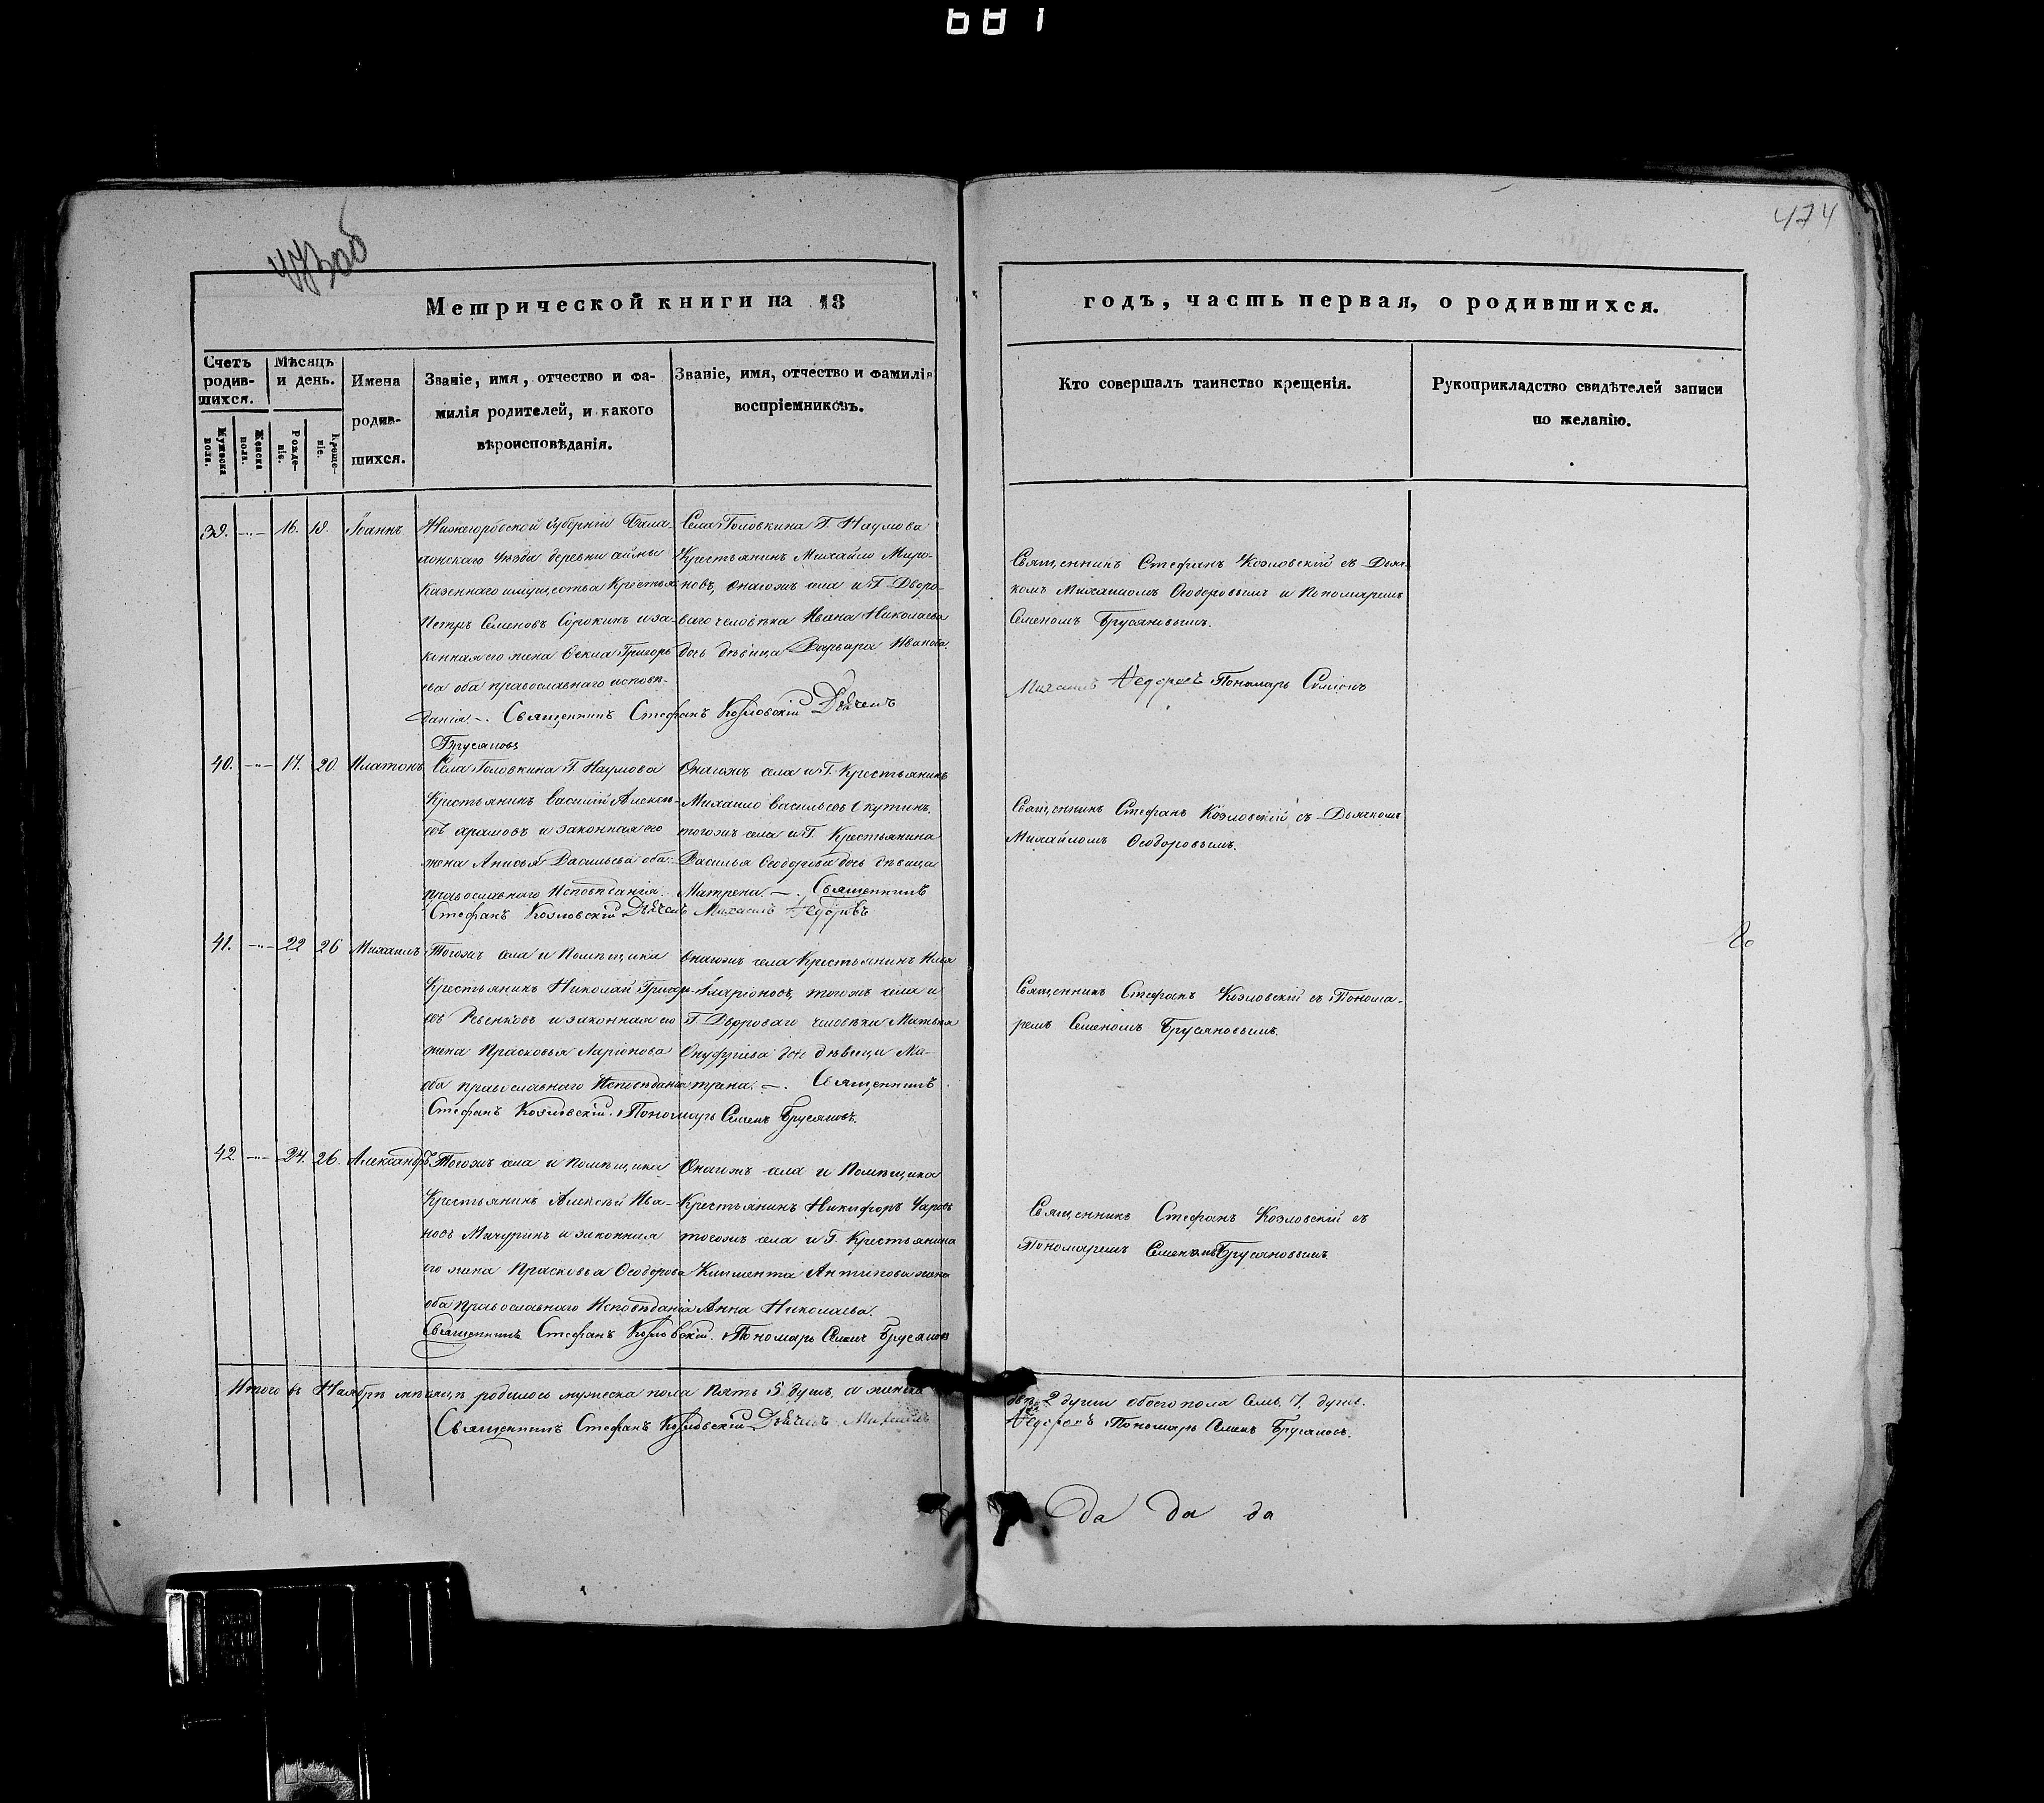 681
474
473 об
Метрической книги на 18
годъ, часть первая, о родившихся.
Счетъ родив-шихся.
Мужеска пола.
Женска пола.
Мѣсяцъ и день.
Рожде-ніе.
Креще-ніе.
Имена родив-шихся.
Званіе, имя, отчество и фа-
милія родителей, и какого
вѣроисповѣданія.
Званіе, имя, отчество и фамилія
воспріемниковъ.
Кто совершалъ таинство крещенія.
Рукоприкладство свидѣтелей записи
по желанію.
39. 16. 19. Іоаннъ
Нижегородской Губерніи Бала-
хонскаго Уѣзда деревни
Казеннаго имущества Крестья-
Петръ Семеновъ Сорокинъ и за-
конная его жена Фекла Григорь
ева оба православнаго исповѣ-
данія. Священникъ Стефанъ Козловскій Дьячекъ
Брусяновъ
Села Головкина Г. Наумова
Крестьянинъ Михайло Миро-
новъ, онагожъ села и Г. Дворо-
ваго человѣка Ивана Николаева
дочь дѣвица Варвара Иванова.
Священникъ Стефанъ Козловскій съ Дьяч-
комъ Михаиломъ Ѳеодоровымъ и Пономаремъ
Семеномъ Брусяновымъ.
Михаилъ Ѳедоровъ Пономарь Семенъ
40. 17. 20. Платонъ
Села Головкина Г. Наумова
Крестьянинъ Василій Алексѣ-
евъ Храмовъ и законная его
жена Анисья Васильева оба
православнаго Исповѣданія.
Стефанъ Козловскій Дьячекъ Михаилъ Ѳедоровъ
Онагожъ села и Г. Крестьянинъ
Михайло Васильевъ Окутинъ,
тогожъ села и Г. Крестьянина
Василья Ѳеодорова дочь дѣвица
Матрена. Священникъ
Священникъ Стефанъ Козловскій съ Дьячкомъ
Михайломъ Ѳеодоровымъ.
41. 22 26 Михаилъ
Тогожъ села и Помѣщика
Крестьянинъ Николай Григорь-
евъ Ревенковъ и законная его
жена Прасковья Ларіонова
оба православнаго Исповѣданія
Стефанъ Козловскій. Пономарь Семенъ Брусяновъ.
Онагожъ села Крестьянинъ Илья
Ларіоновъ, тогожъ села и
Г. Двороваго человѣка Матвея
Онуфріева дочь дѣвица Ма-
трена. Священникъ
Священникъ Стефанъ Козловскій съ Понома-
ремъ Семеномъ Брусяновымъ.
42. 24. 26. Александръ
Тогожъ села и Помѣщика
Крестьянинъ Алексѣй Ива-
новъ Мичуринъ и законная
его жена Прасковья Ѳеодорова
оба Православнаго Исповѣданія
Священникъ Стефанъ Козловскій. Пономарь Семенъ Брусяновъ
Онагожъ села и Помѣщика
Крестьянинъ Никифоръ
тогожъ села и Г. Крестьянина
Климента Антипова жена
Анна Николаева.
Священникъ Стефанъ Козловскій съ
Пономаремъ Семеномъ Брусяновымъ
Итого въ Ноябрѣ мѣсяцѣ родилось мужеска пола Пять 5. душъ, а женска
двѣ 2 души обоего пола Семь 7. душъ.
Священникъ Стефанъ Козловскій Дьячекъ Михаилъ
Ѳедоровъ Пономарь Семенъ Брусяновъ.
да да да